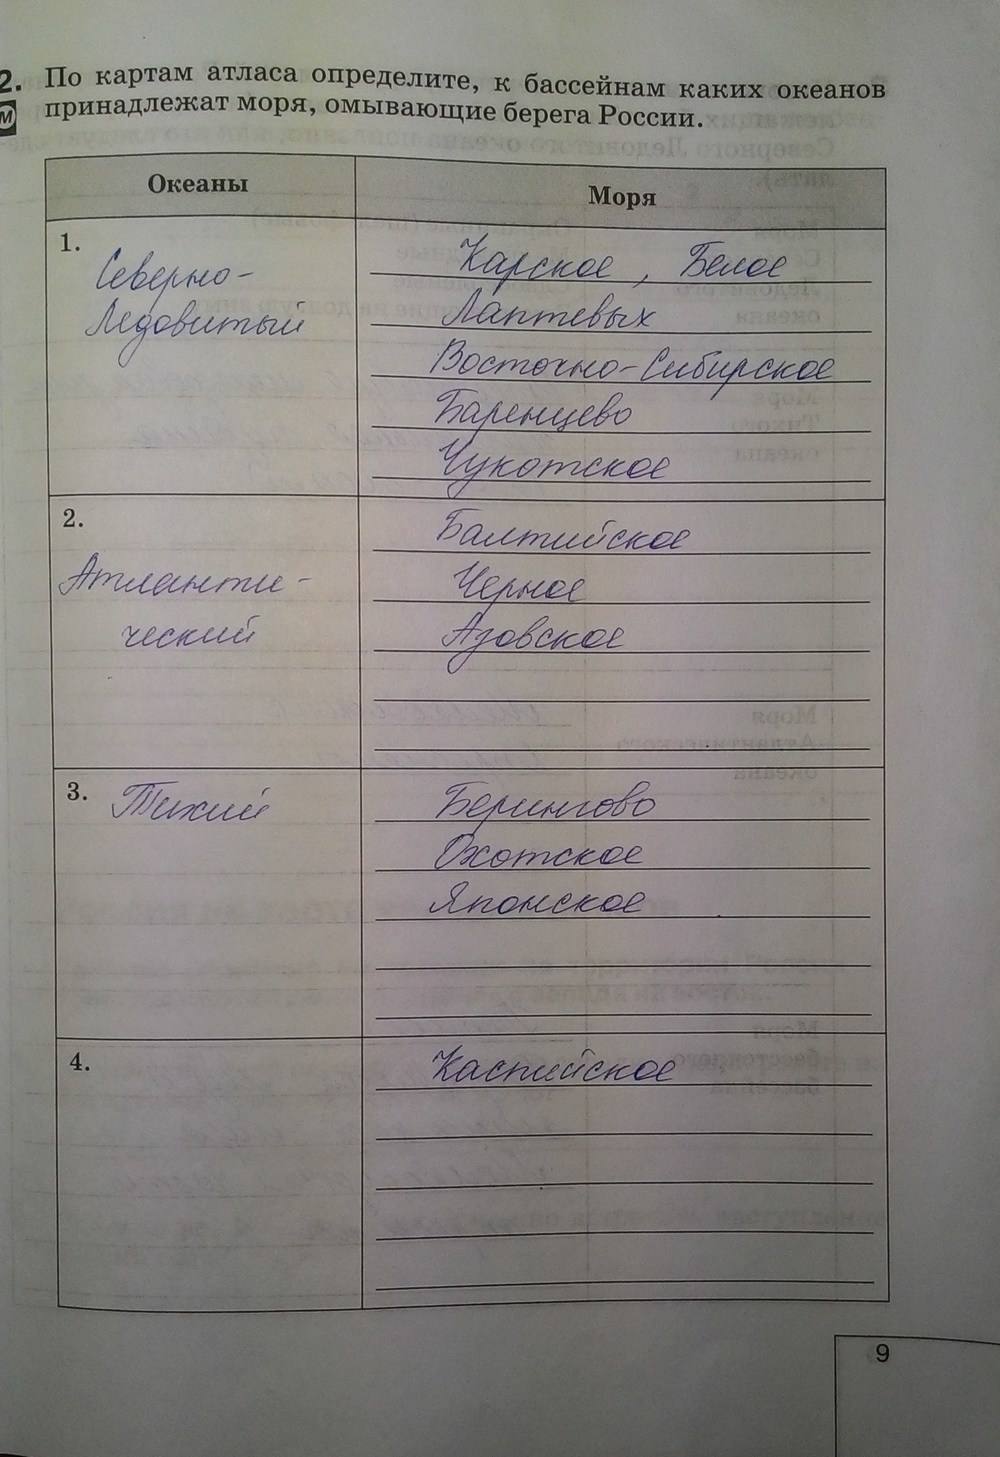 2. По картам атласа определите, к бассейнам каких океанов
М принадлежат моря, омывающие берега России.
Океаны
Моря
1.
Северно-
Ледовитый
Карское, Белое
Лаптевых
Восточно-Сибирское
Баренцево
Чукотское
2.
Атланти-
ческий
Балтийское
Черное
Азовское
3. Тихий
Берингово
Охотское
Японское
4.
Каспийское
9